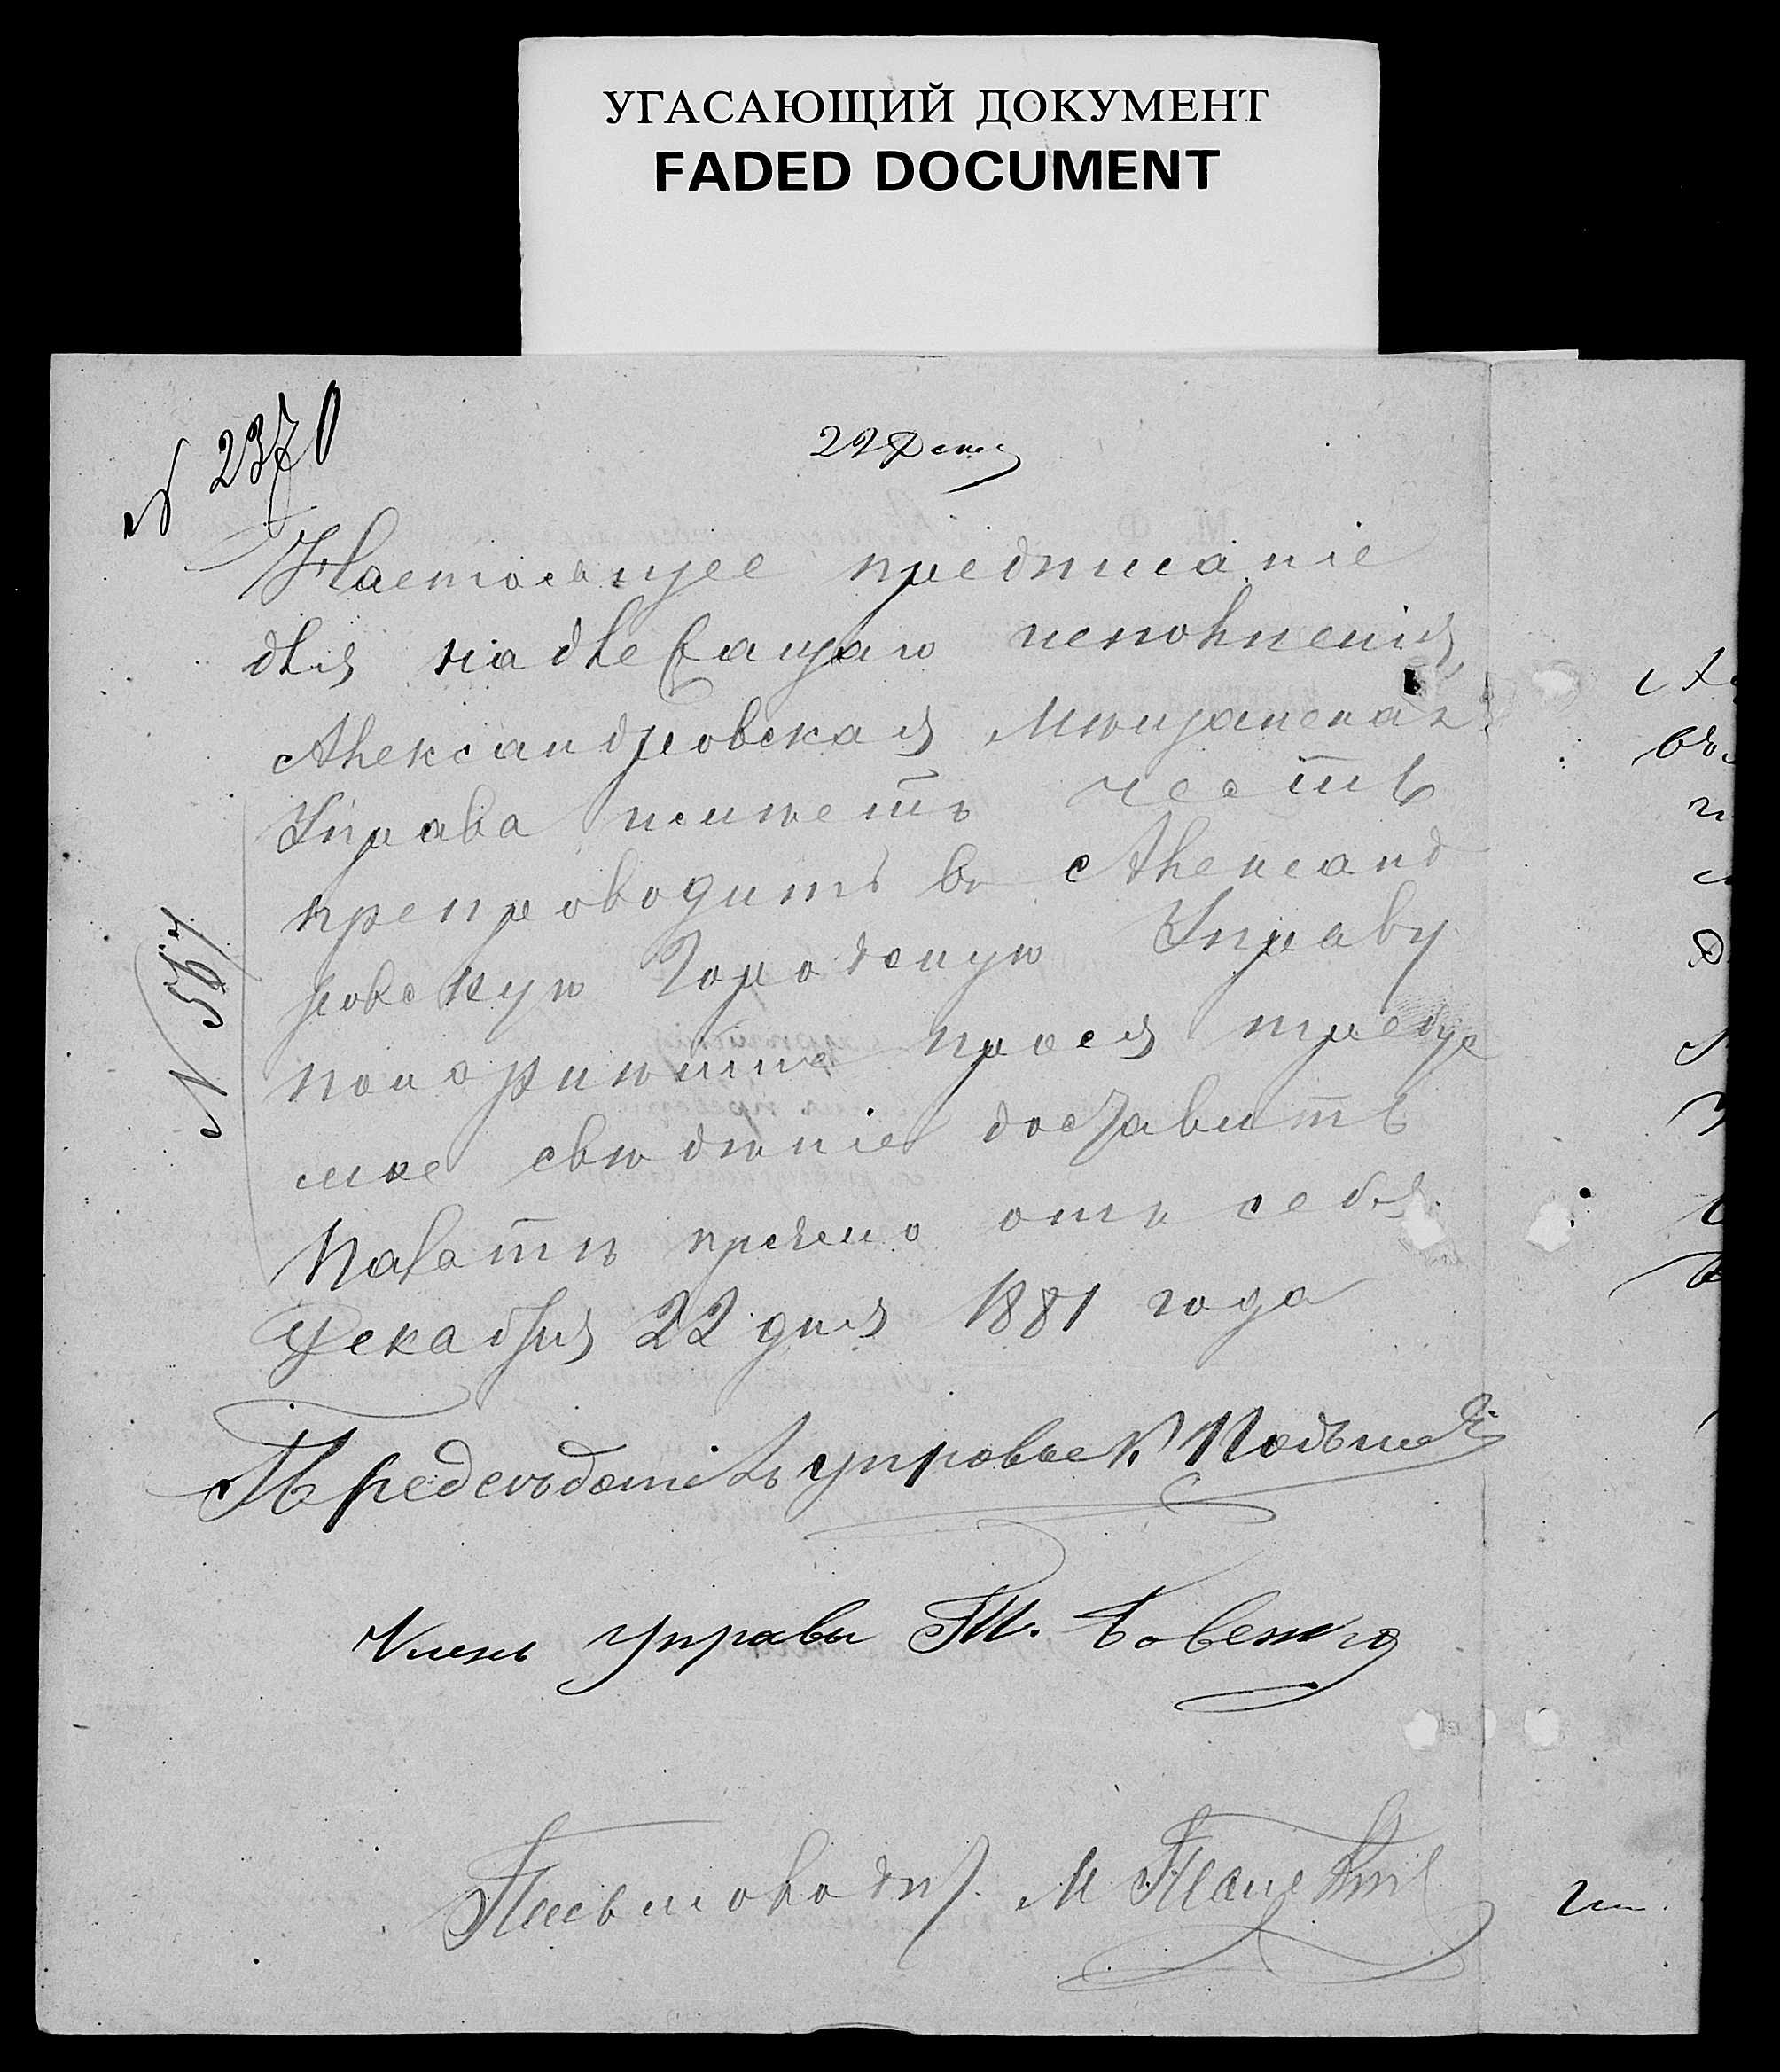 УГАСАЮЩИЙ ДОКУМЕНТ
FADED DOCUMENT
№ 2370
22 Дек
Настоящее предписаніе
для надлежащаго исполненія
Александровская Мѣщанская
Управа имѣетъ честь
препроводить въ Александ
ровскую Городскую Управу
покорнѣйше прося требуе
мое свѣдѣніе доставить
Палатѣ прямо отъ себя
Декабря 22 дня 1881 года
№ 557
Предсѣдатель управы К.
Членъ Управы
Письмовод. М